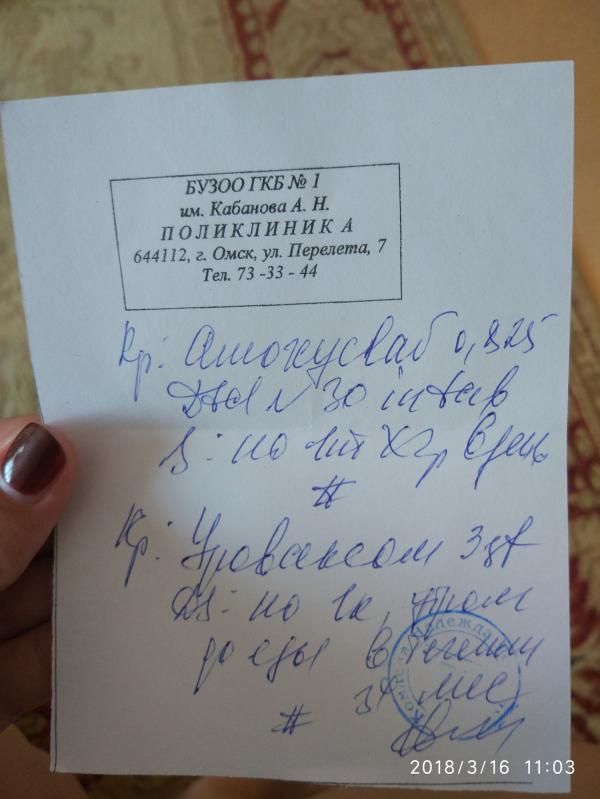 БУЗОО ГКБ № 1
им. Кабанова А. Н.
ПОЛИКЛИНИКА
644112, г. Омск, ул. Перелета, 7
Тел. 73 -33 - 44
Rp: Амоксиклав 0,825
Dtd N 30 in tab
S: по 1т Х 2р в день
#
Rp: Уроваксом
DS: по 1к, утром
до еды в течении
3х мес
#
Надежда
2018/3/16 11:03